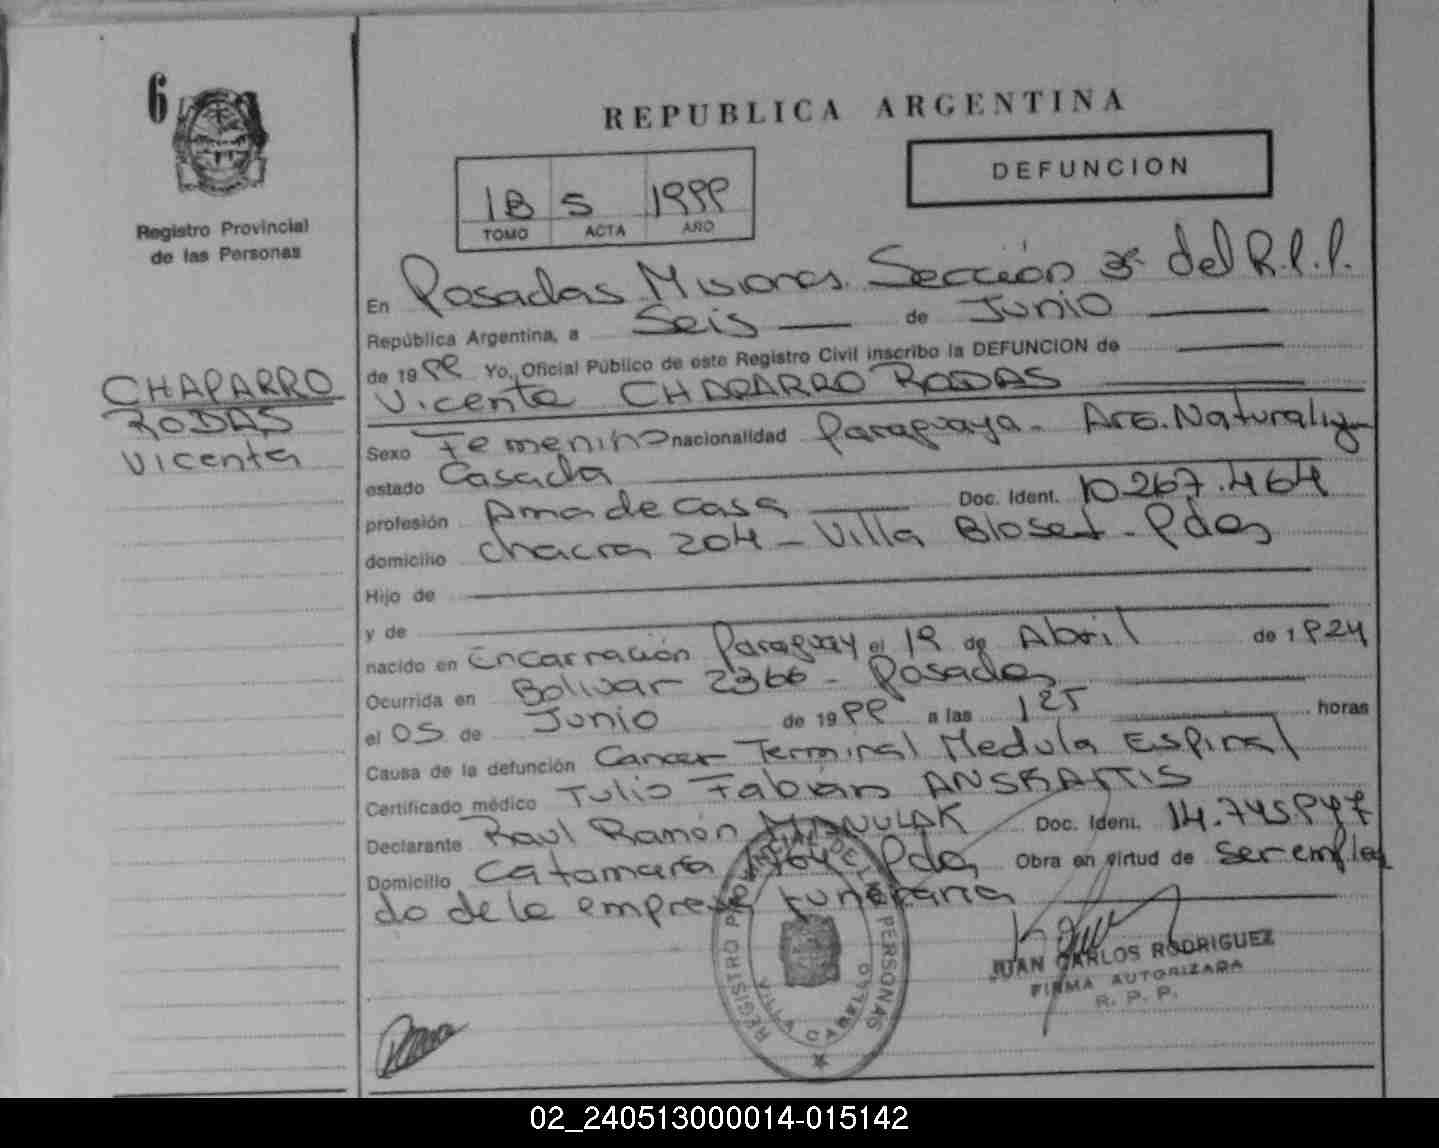 6
Registro Provincial
de las Personas
CHAPARRO
RODAS
Vicenta
REPUBLICA ARGENTINA
DEFUNCION
1B 5 1999
TOMO ACTA AÑO
En Posadas Misiones. Sección 3ª del R.P.P.
República Argentina, a Seis de Junio
de 1999 Yo, Oficial Público de este Registro Civil inscribo la DEFUNCION de
Vicenta CHAPARRO RODAS
Sexo Femenino nacionalidad Paraguaya - Arg. Naturaliz
estado Casada
profesión Ama de casa Doc. Ident. 10.267.464
domicilio Chacra 204 - Villa Bloset - Pdas
Hijo de
y de
nacido en Encarnación Paraguay el 19 de Abril de 1924
Ocurrida en Bolivar 2366 - Posadas
el 05 de Junio de 1999 a las 1 25 horas
Causa de la defunción Cancer Terminal Medula Espinal
Certificado médico Tulio Fabián ANSKAITIS
Declarante Raul Ramón MANULAK Doc. Ident. 14.745.947
Domicilio Catamarca Pdas Obra en virtud de ser emplea
do de la empresa funeraria
REGISTRO PROVINCIAL DE LAS PERSONAS
VILLA CABELLO
JUAN CARLOS RODRIGUEZ
FIRMA AUTORIZADA
R. P. P.
02_240513000014-015142